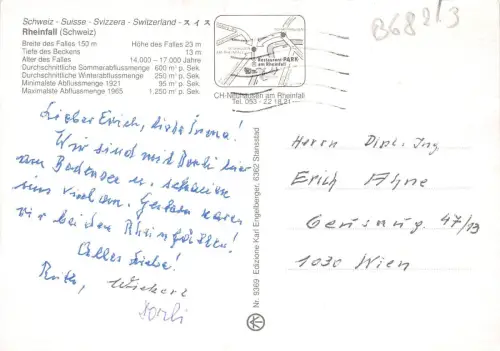 Schweiz - Suisse - Svizzera - Switzerland - スイス
Rheinfall (Schweiz)
Breite des Falles 150 m Höhe des Falles 23 m
Tiefe des Beckens 13 m
Alter des Falles 14.000 – 17.000 Jahre
Durchschnittliche Sommerabflussmenge 600 m³ p. Sek.
Durchschnittliche Winterabflussmenge 250 m³ p. Sek.
Minimalste Abflussmenge 1921 95 m³ p. Sek.
Maximalste Abflussmenge 1965 1.250 m³ p. Sek.
Restaurant PARK
am Rheinfall
CH-Neuhausen am Rheinfall
Tel. 053 - 22 18 21
B68213
Lieber Erich, liebe Irma!
Wir sind mit Dorli hier
am Bodensee u. schauen
uns viel an. Gestern waren
wir bei den Rheinfällen!
Alles Liebe!
Ruth,
Dorli
Herrn Dipl. Ing
Erich
47/13
1030 Wien
Nr. 9309 Edizione Karl Engelberger, 6362 Stansstad